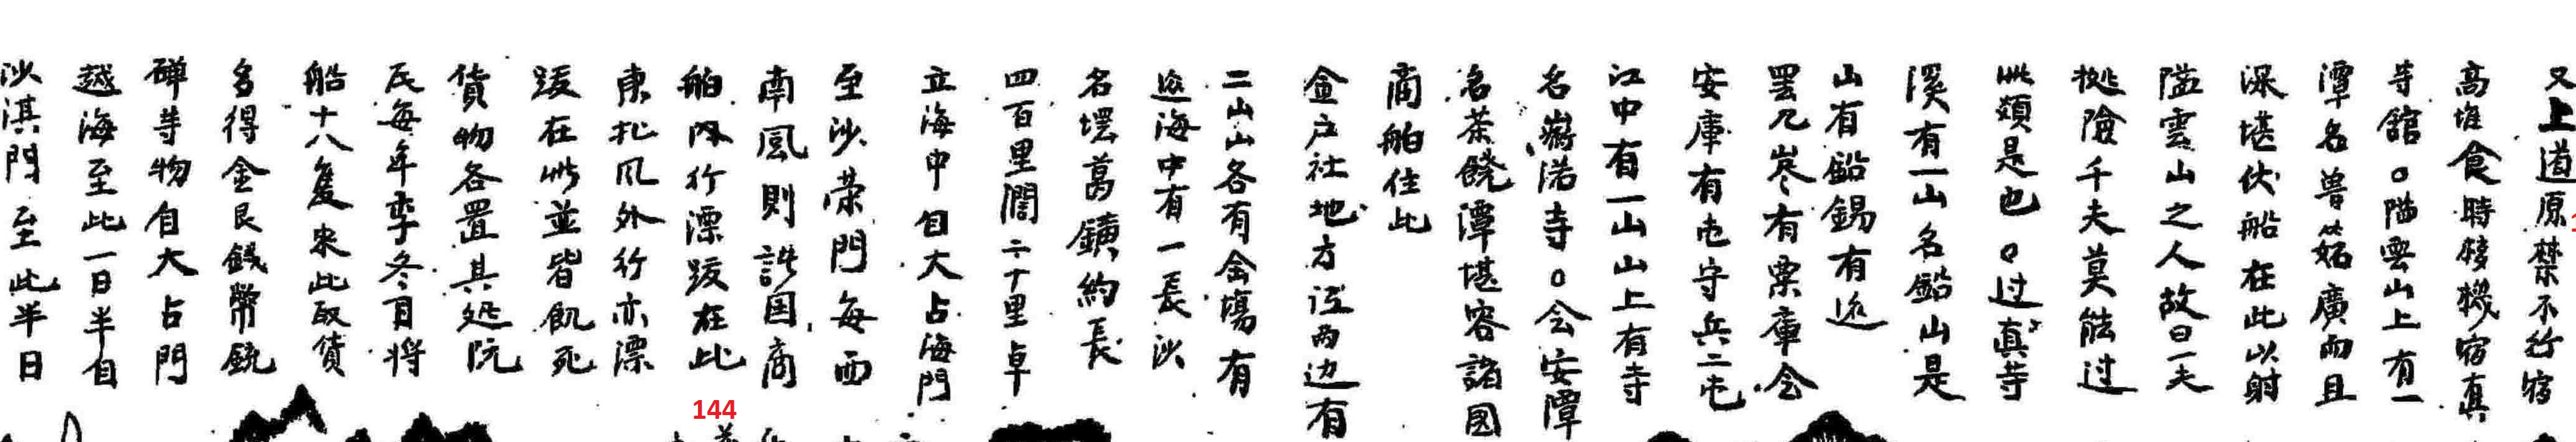 又上道原禁不行宿
高堆食時移機宿真
寺舘○隘雲山上有一
潭名兽 廣而且
深堪伏船在此以射
隘雲山之人故曰一夫
拠險千夫莫能过
此類是也○过真寺
溪有一山名鉛山是
山有鉛錫有近
罢兀岑有粟庫会
安庫有屯守兵二屯
江中有一山山上有寺
名 渃寺○会安潭
名茶饒潭堪容諸国
商舶住此
金户社地方 两边有
二山山各有金場有
近海中有一長沙
名𡓁葛鐄約長
四百里闊二十里卓
立海中自大占海門
至沙荣門每西
南風則諸国商
舶内行漂跋在此
東北风外行亦漂
跋在此並皆飢死
貨物各置其処阮
氏每年季冬月将
船十八隻来此取貨
多得金艮錢幣銃
磾等物自大占門
越海至此一日半自
沙淇門至此半日